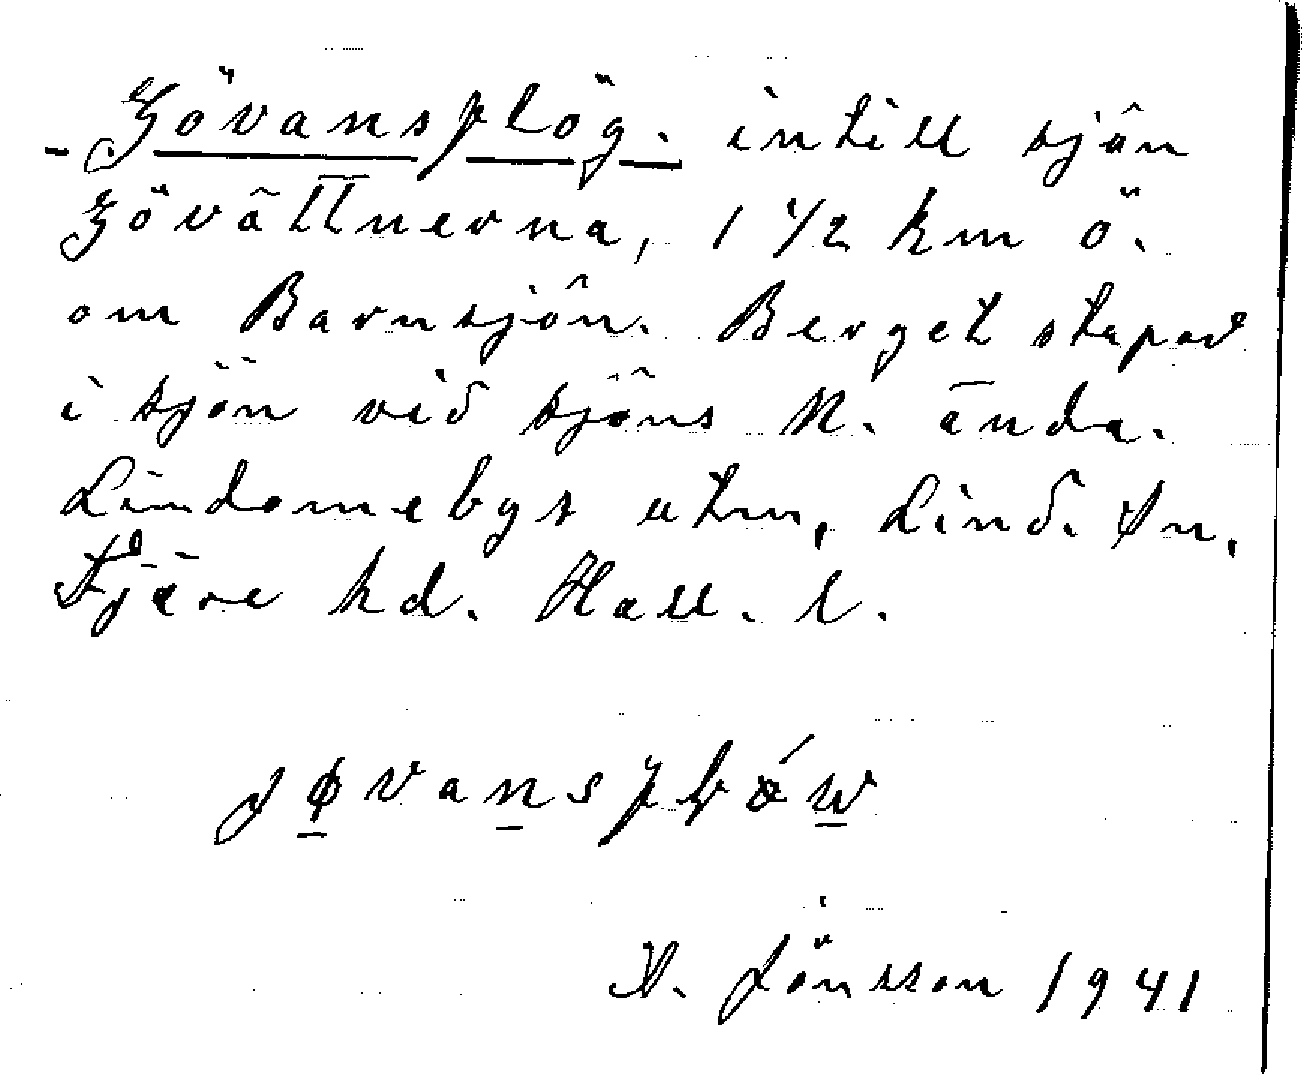 - Gövansplög. intill sjön
Gövättnerna, 1 1/2 km ö.
om Barnsjön. Berget stupar
i sjön vid sjöns N. ända.
Lindomebys utm, Lind. sn,
Fjäre hd. Hall. l.
V. Jönsson 1941